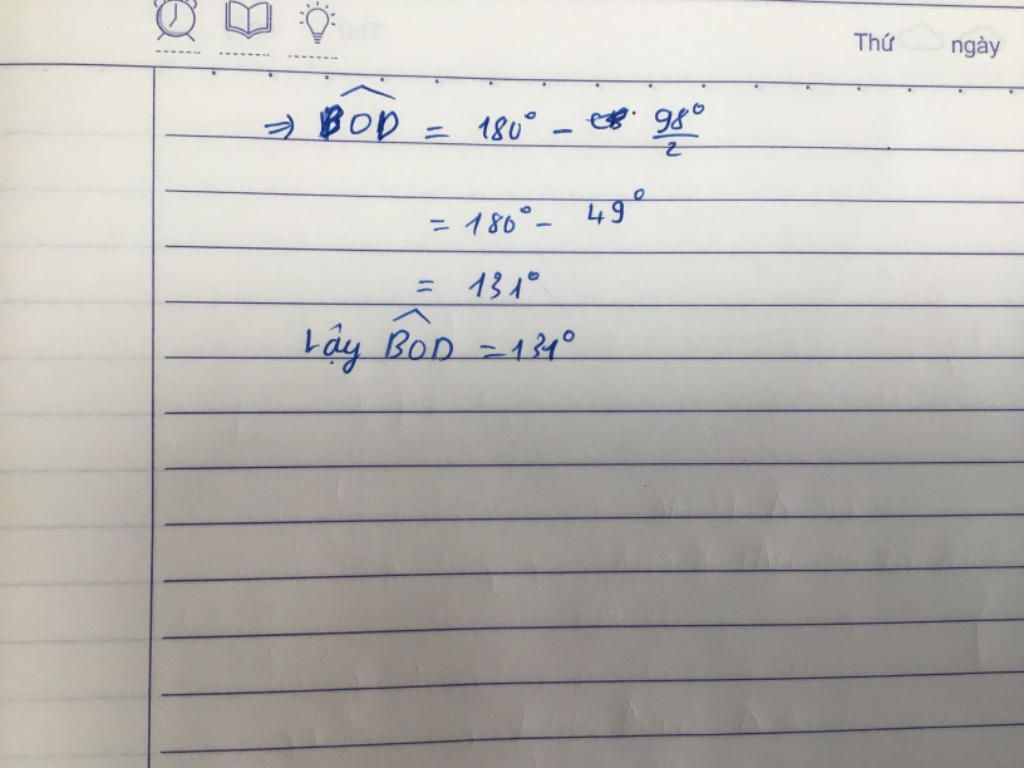 Thứ ngày
⇒ \widehat{BOD} = 180° - \frac{98°}{2}
= 180° - 49°
= 131°
Vậy \widehat{BOD} = 131°